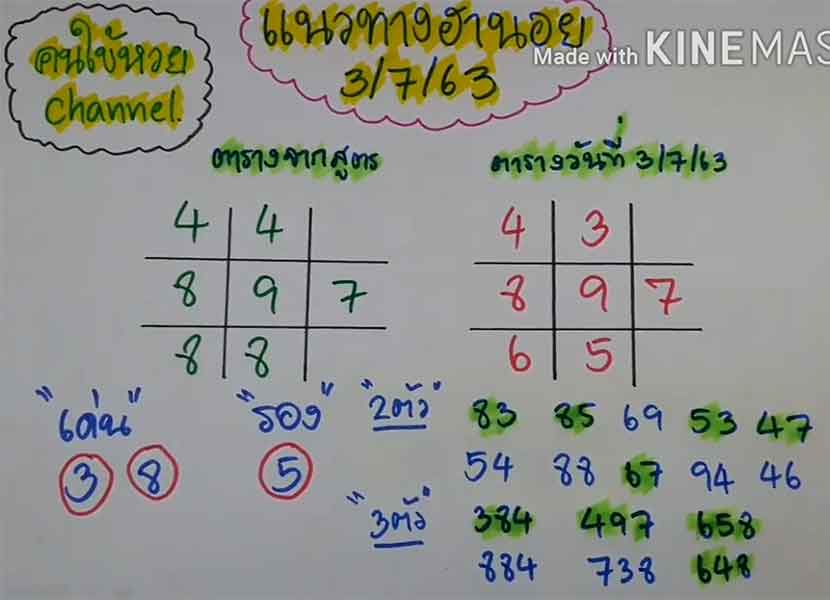 แนวทางฮานอย
3/7/63
คนใบ้หวย
Channel.
Made with KINEMAS
ตารางจากสูตร
4 4
8 9 7
8 8
ตารางวันที่ 3/7/63
4 3
8 9 7
6 5
"เด่น"
3 8
"รอง"
5
"2ตัว"
83 85 69 53 47
54 88 67 94 46
"3ตัว"
384 497 658
884 738 648